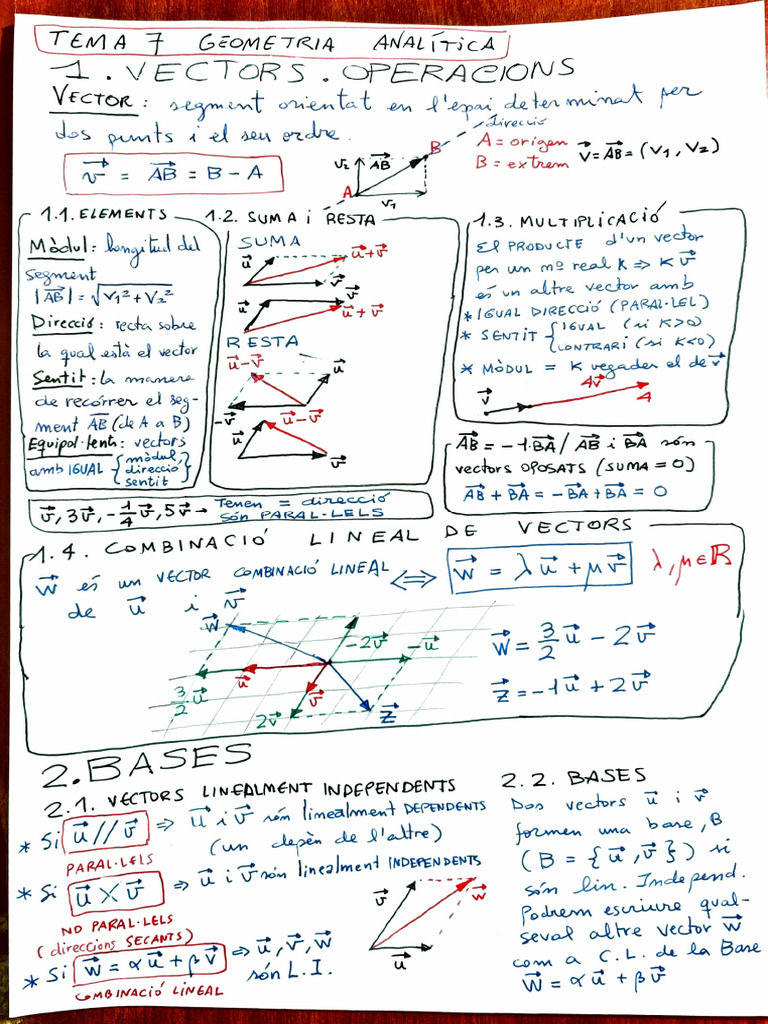 TEMA 7 GEOMETRIA ANALÍTICA
1. VECTORS. OPERACIONS
VECTOR: segment orientat en l'espai determinat per
dos punts i el seu ordre.
v⃗ = AB⃗ = B - A
direcció
V₂ AB⃗ B
A V₁
A = origen
B = extrem
v⃗ = AB⃗ = (V₁, V₂)
1.1. ELEMENTS
Mòdul: longitud del
segment
|AB⃗| = √V₁² + V₂²
Direcció: recta sobre
la qual està el vector
Sentit: la manera
de recórrer el seg-
ment AB⃗ (de A a B)
Equipol·lents: vectors
amb IGUAL { mòdul
direcció
sentit
1.2. SUMA I RESTA
SUMA
u⃗ u⃗+v⃗
v⃗
u⃗ v⃗
u⃗+v⃗
RESTA
u⃗-v⃗ u⃗
-v⃗ u⃗-v⃗ v⃗
u⃗
v⃗
1.3. MULTIPLICACIÓ
El PRODUCTE d'un vector
per un nº real K ⇒ K v⃗
és un altre vector amb
* IGUAL DIRECCIÓ (PARAL·LEL)
* SENTIT { IGUAL (si K>0)
CONTRARI (si K<0)
* MÒDUL = K vegades el de v⃗
v⃗ 4v⃗
4
AB⃗ = -1·BA⃗ / AB⃗ i BA⃗ són
vectors OPOSATS (SUMA = 0)
AB⃗ + BA⃗ = -BA⃗ + BA⃗ = 0
v⃗, 3v⃗, -1/4 v⃗, 5v⃗ → Tenen = direcció
són PARAL·LELS
1.4. COMBINACIÓ LINEAL DE VECTORS
w⃗ és un VECTOR COMBINACIÓ LINEAL
de u⃗ i v⃗
⟺ w⃗ = λu⃗ + μv⃗ λ, μ ∈ ℝ
w⃗ -2v⃗ -u⃗
3/2 u⃗ u⃗ v⃗
2v⃗ z⃗
w⃗ = 3/2 u⃗ - 2v⃗
z⃗ = -1u⃗ + 2v⃗
2. BASES
2.1. VECTORS LINEALMENT INDEPENDENTS
* Si u⃗ // v⃗ ⇒ u⃗ i v⃗ són linealment DEPENDENTS
(un depèn de l'altre)
PARAL·LELS
* Si u⃗ X v⃗ ⇒ u⃗ i v⃗ són linealment INDEPENDENTS
NO PARAL·LELS
(direccions SECANTS)
* Si w⃗ = αu⃗ + βv⃗ ⇒ u⃗, v⃗, w⃗
són L.I.
COMBINACIÓ LINEAL
v⃗ w⃗
u⃗
2.2. BASES
Dos vectors u⃗ i v⃗
formen una base, B
(B = {u⃗, v⃗}) si
són lin. Independ.
Podrem escriure qual-
seval altre vector w⃗
com a C.L. de la Base
w⃗ = αu⃗ + βv⃗